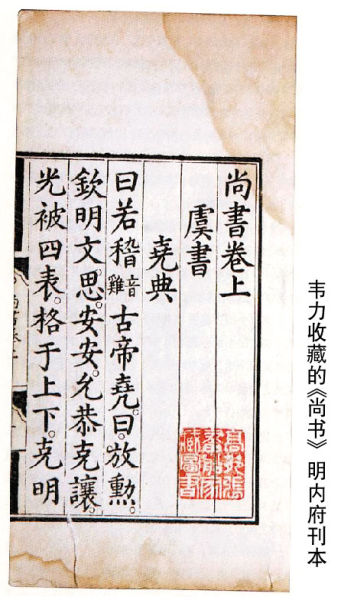 尚書卷上
虞書
堯典
曰若稽音雞古帝堯。曰。放勲。
欽明文思。安安。允恭克讓。
光被四表。格于上下。克明
韦力收藏的《尚书》明内府刊本